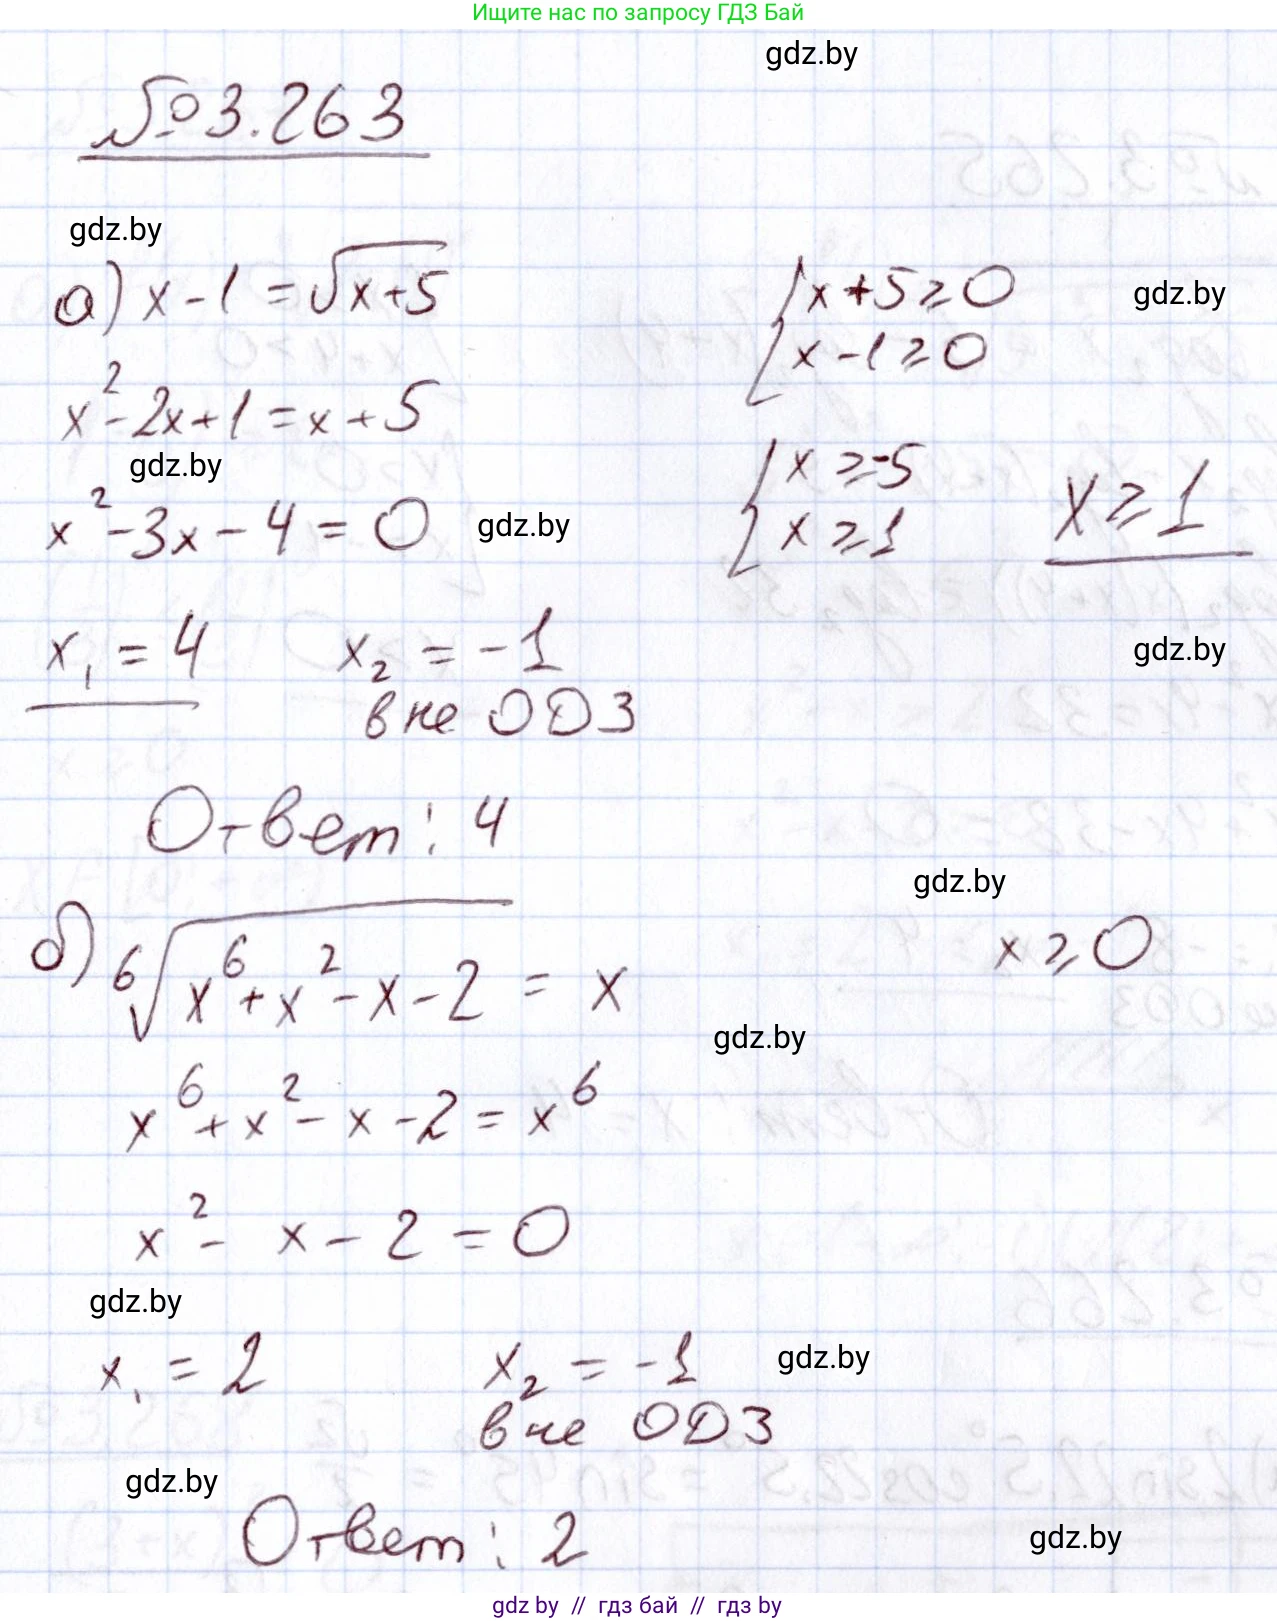 Ищите нас по запросу ГДЗ Бай
gdz.by
№3.263
gdz.by
а) x - 1 = √(x+5)
{ x + 5 ⩾ 0
gdz.by
x - 1 ⩾ 0
x² - 2x + 1 = x + 5
gdz.by
{ x ⩾ -5
x ⩾ 1
x ⩾ 1
x² - 3x - 4 = 0
gdz.by
x₁ = 4
x₂ = -1
gdz.by
вне ОДЗ
Ответ: 4
gdz.by
б) ⁶√(x⁶ + x² - x - 2) = x
x ⩾ 0
gdz.by
x⁶ + x² - x - 2 = x⁶
x² - x - 2 = 0
gdz.by
x₁ = 2
x₂ = -1
gdz.by
вне ОДЗ
gdz.by
Ответ: 2
gdz.by
gdz by // гдз бай // гдз by